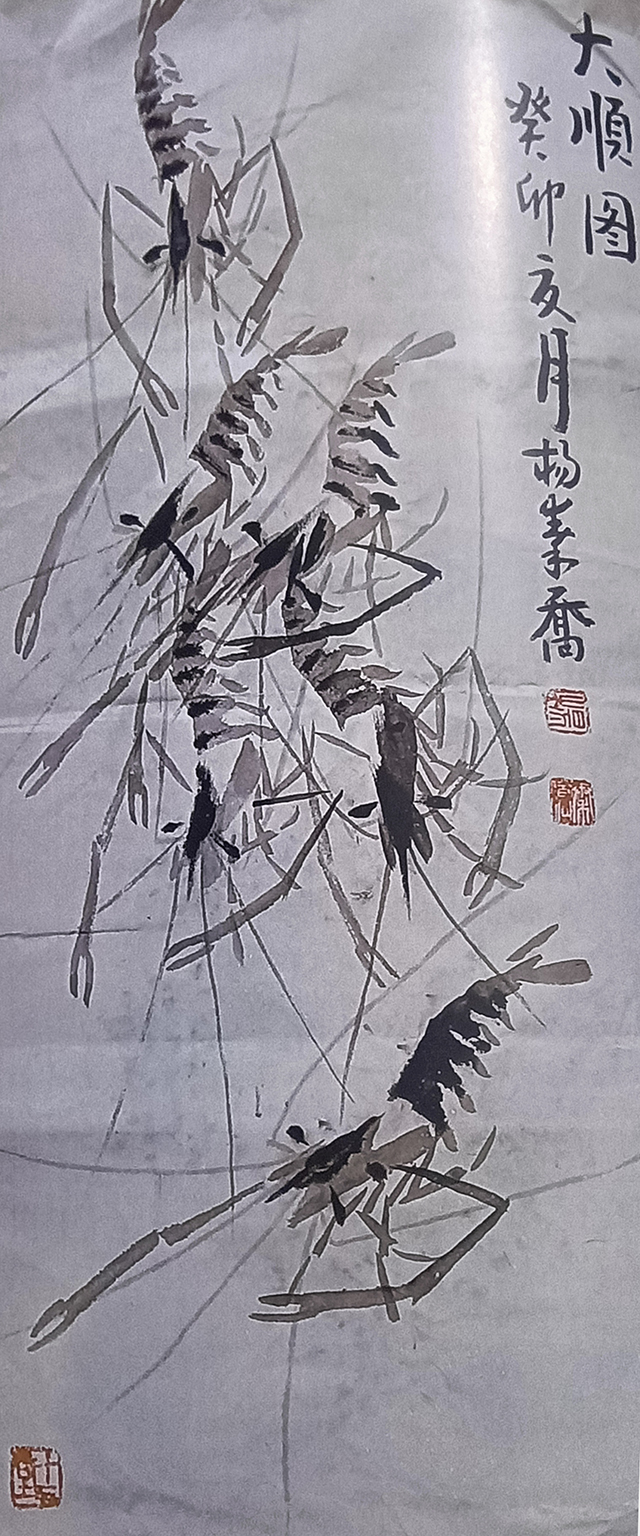 大順图
癸卯亥月杨素喬